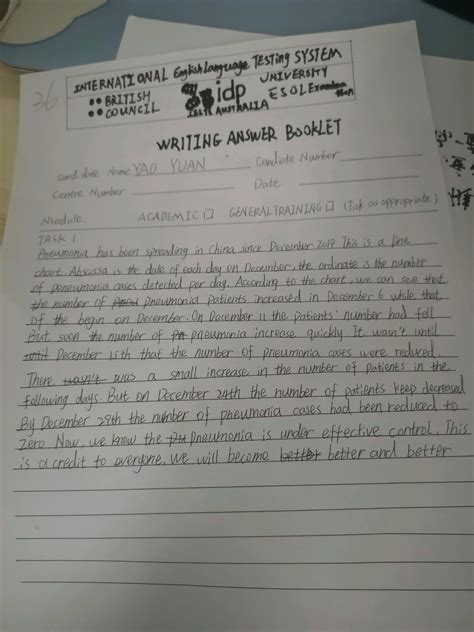 36
INTERNATIONAL English Language TESTING SYSTEM
BRITISH COUNCIL
idp
IELTS AUSTRALIA
UNIVERSITY
ESOL
WRITING ANSWER BOOKLET
Candidate Name YAO YUAN Candiate Number
Centre Number Date
Module: ACADEMIC GENERAL TRAINING (Tik as appropriate)
TASK 1
Pneumonia has been spreading in China since December 2019 This is a line
chart. Abscissa is the date of each day on December, the ordinate is the number
of poneumonia cases detected per day. According to the chart, we can see that
the number of pneumonia patients increased in December 6 while that
of the begin on December. On December 11 the patients' number had fell
But soon the number of pneumonia increase quickly It wasn't until
until December 15th that the number of pneumonia cases were reduced
There wasn't was a small increase in the number of patients in the
following days. But on December 24th the number of patients keep decreased
By December 29th the number of pheumonia cases had been reduced to
zero Now, we know the pneumonia is under effective control. This
is a credit to everyone. We will become better better and better